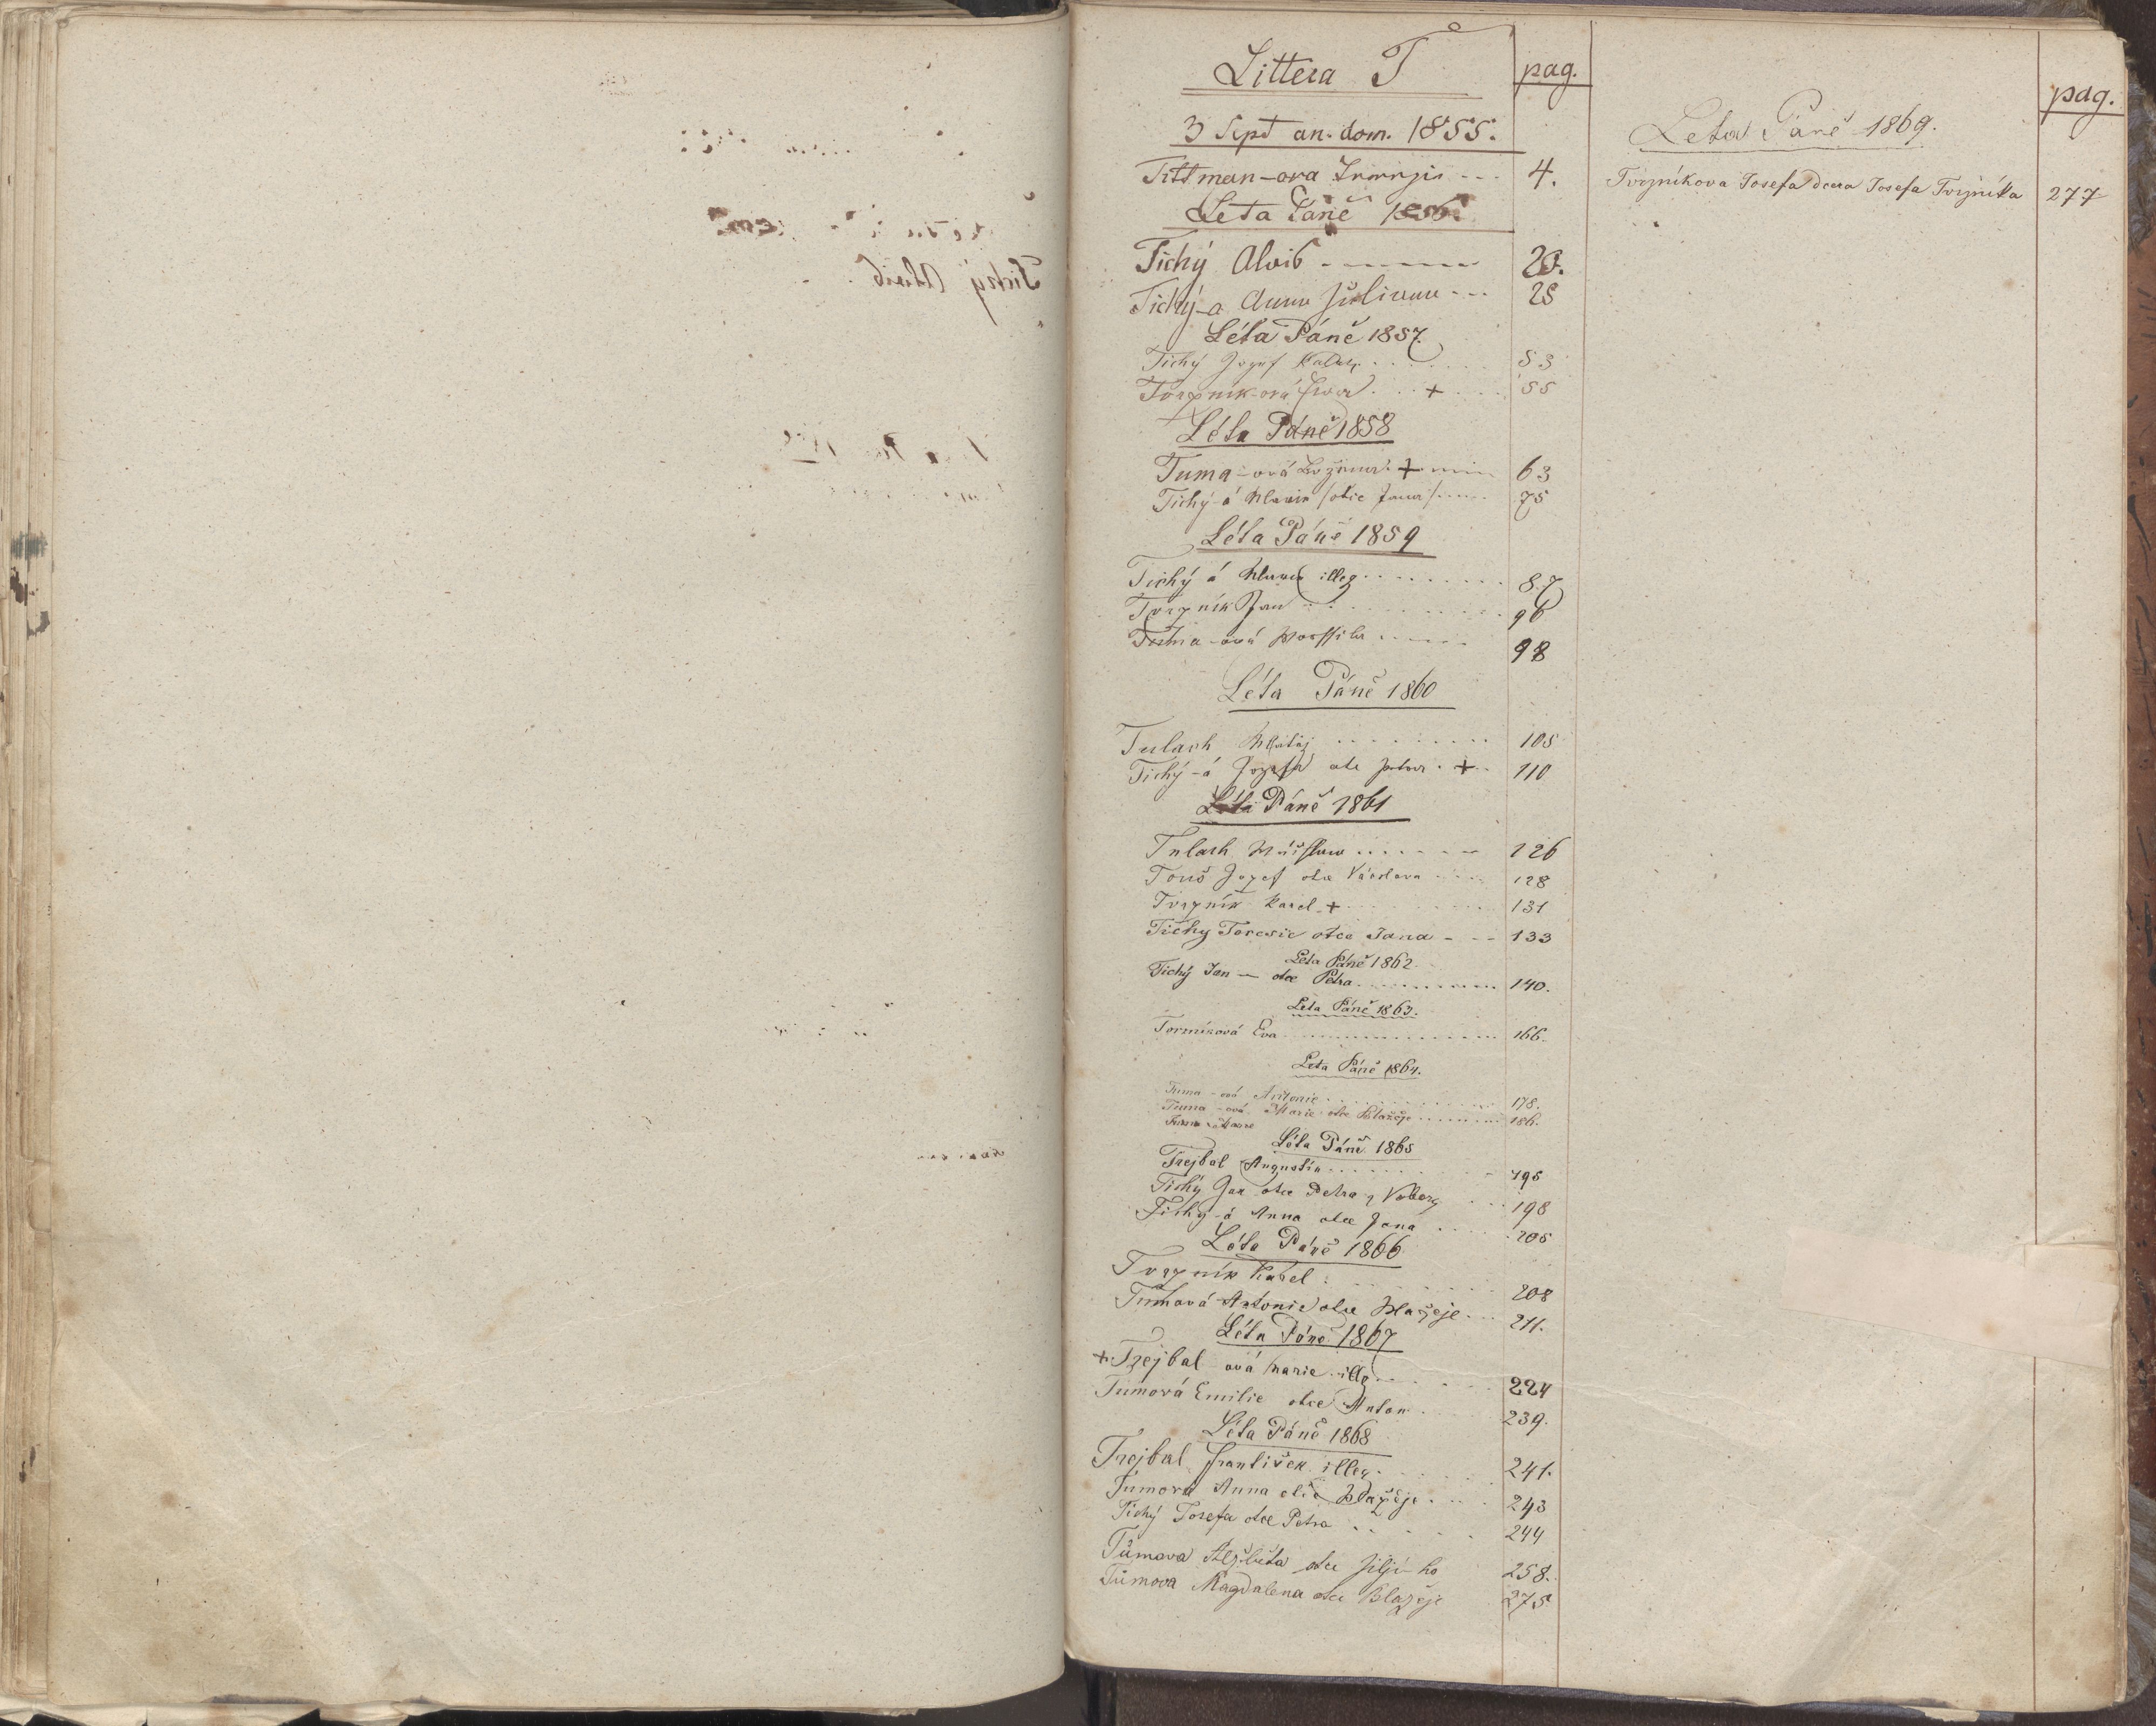 Littera T pag.
3 Sept an. dom. 1855.
Tittman-ova --- 4.
Leta Páně 1856
Tichý Alois 20.
Tichý-a Anna Juliana --- 25
Léta Páně 1857.
Tichý Jozef 53
Tvrzník-ová + 55
Léta Páně 1858
Tuma-ová Božena + 63
Tichý-á Marie /otce Jana/ 75
Léta Páně 1859
Tichý á Marie illeg. 87
Tvrzník Jan 96
Tuma-ová 98
Léta Páně 1860
Tulach Matěj 105
Tichý-á Jozefa otce Petra + 110
Léta Páně 1861
Tulach 126
Touš Jozef otce Václava 128
Tvrzník Karel + 131
Tichy Terezie otce Jana - - - 133
Leta Páně 1862.
Tichý Jan — otce Petra 140.
Leta Páně 1863.
Eva 166.
Leta Páně 1864.
Tuma-ová Antonie 178.
Tuma-ová Marie otce Blažeje 186.
Tuma Marie
Léta Páně 1865
Trejbal Augustin 195
Tichý Jan otce Petra z 198
Tichý-á Anna otce Jana 205
Léta Páně 1866
Tvrzník Karel 208
Tumová Antonie otce Blažeje 211.
Léta Páně 1867
+ Trejbal-ová Marie illeg. 224
Tumová Emilie otce Anton 239.
Léta Páně 1868
Trejbal František illeg. 241.
Tumová Anna otce Blažeje 243
Tichý Josefa otce Petra 244
Tůmova Alžběta otce Jiljí-ho 258.
Tůmova Magdalena otce Blažeje 275
pag.
Leta Páně 1869.
Tvrzníkova Josefa dcera Josefa Tvrzníka 277